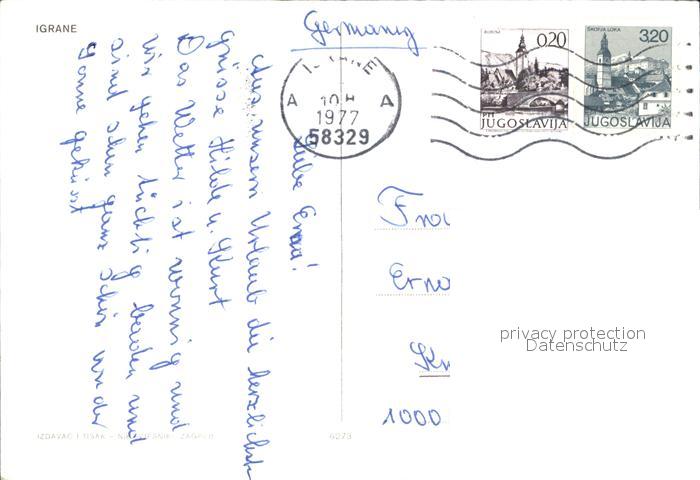 IGRANE
Germany
BOHINJ
0,20
PTT JUGOSLAVIJA
ŠKOFJA LOKA
3,20
JUGOSLAVIJA
IGRANE
A 10 H A
1977
58329
Liebe Erna!
Aus unsem Urlaub die herzlichste
Grüsse Hilde u. Kurt
Das Wetter ist sonnig und
wir gehen tüchtig baden und
sind schon ganz schön von der
Sonne geküsst
Frau
Erna
Kr
1000
privacy protection
Datenschutz
IZDAVAČ I TISAK - NIŠP VJESNIK - ZAGREB
6273